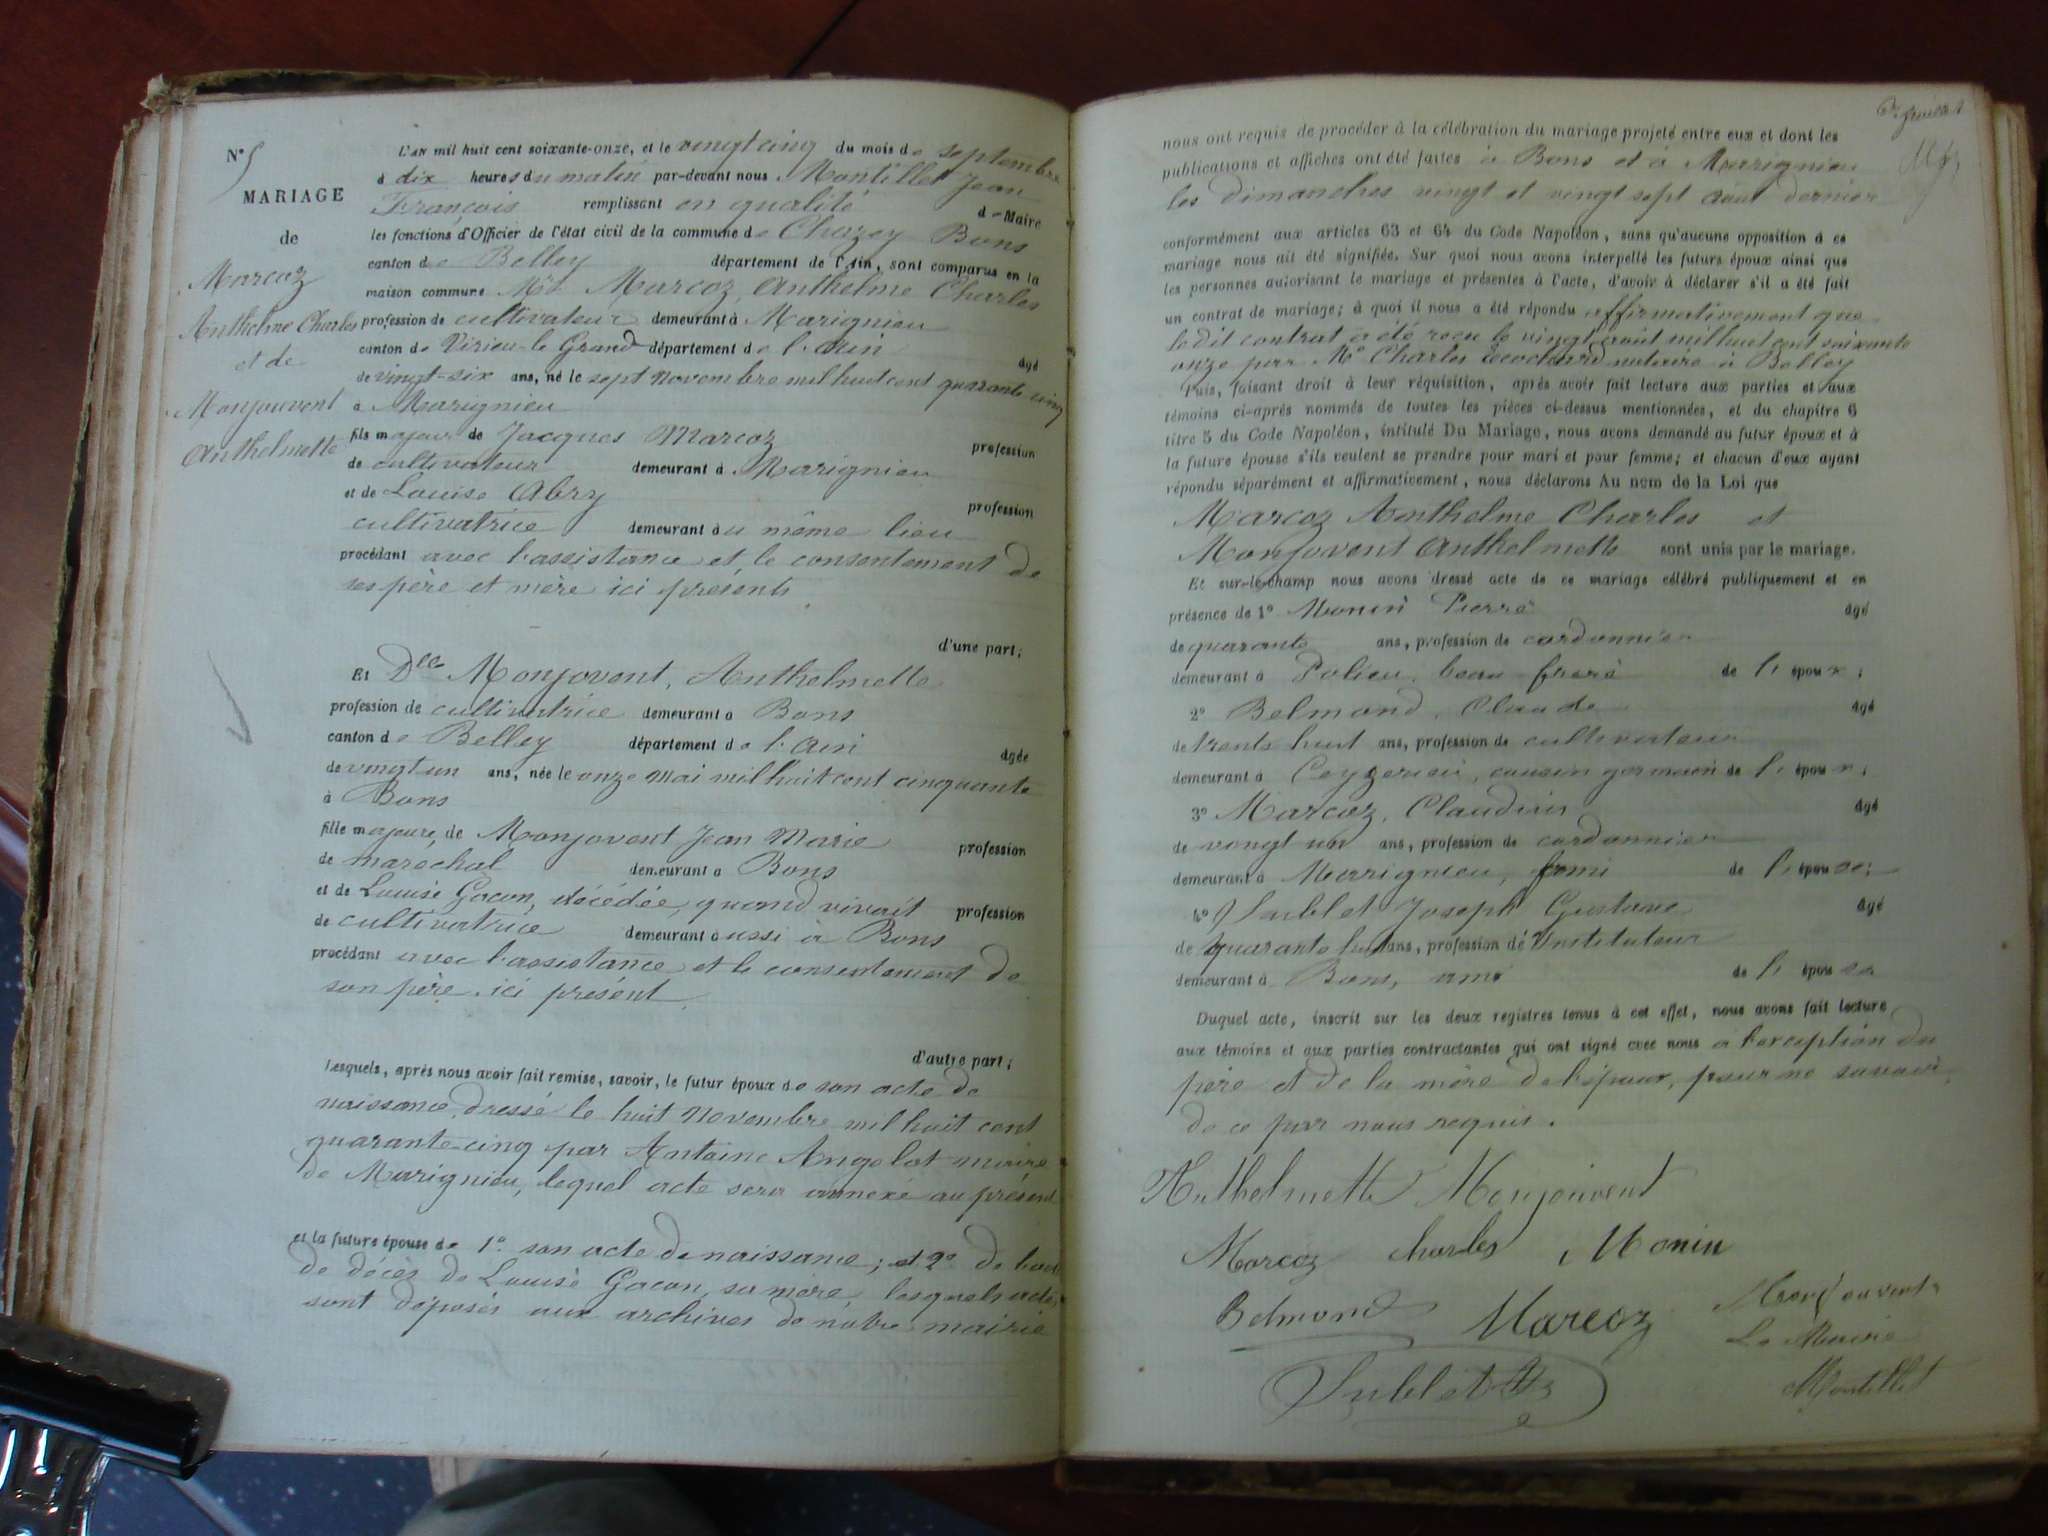 N° 5
MARIAGE
de
Marcoz
Anthelme Charles
et de
Monjouvent
Anthelmette
L'AN mil huit cent soixante-onze, et le vingt cinq du mois de septembre
à dix heures du matin par-devant nous Montillet Jean
François remplissant en qualité de Maire
les fonctions d'Officier de l'état civil de la commune de Chazey Bons
canton de Belley département de l'Ain, sont comparus en la
maison commune Mr Marcoz, Anthelme Charles
profession de cultivateur demeurant à Marignieu
canton de Virieu-le Grand département de l'Ain âgé
de vingt-six ans, né le sept novembre mil huit cent quarante cinq
à Marignieu
fils majeur de Jacques Marcoz profession
de cultivateur demeurant à Marignieu
et de Louise Abry profession
cultivatrice demeurant au même lieu
procédant avec l'assistance et le consentement de
ses père et mère ici présents
d'une part;
Et Dlle Monjovent, Anthelmette
profession de cultivatrice demeurant à Bons
canton de Belley département de l'Ain âgée
de vingt un ans, née le onze mai mil huit cent cinquante
à Bons
fille majeure, de Monjovent Jean Marie profession
de maréchal demeurant à Bons
et de Louise Gacon, décédée, quand vivait profession
de cultivatrice demeurant aussi à Bons
procédant avec l'assistance et le consentement de
son père, ici présent
d'autre part;
Lesquels, après nous avoir fait remise, savoir, le futur époux de son acte de
naissance, dressé le huit novembre mil huit cent
quarante-cinq par Antoine Angelot maire
de Marignieu, lequel acte sera annexé au présent
et la future épouse de 1° son acte de naissance; et 2° de l'acte
de décès de Louise Gacon, sa mère, lesquels actes
sont déposés aux archives de notre mairie
nous ont requis de procéder à la célébration du mariage projeté entre eux et dont les
publications et affiches ont été faites à Bons et à Marignieu
les dimanches vingt et vingt sept août dernier
conformément aux articles 63 et 64 du Code Napoléon, sans qu'aucune opposition à ce
mariage nous ait été signifiée. Sur quoi nous avons interpellé les futurs époux ainsi que
les personnes autorisant le mariage et présentes à l'acte, d'avoir à déclarer s'il a été fait
un contrat de mariage; à quoi il nous a été répondu affirmativement que
le dit contrat a été reçu le vingt août mil huit cent soixante
onze par Me Charles notaire à Belley
Puis, faisant droit à leur réquisition, après avoir fait lecture aux parties et aux
témoins ci-après nommés de toutes les pièces ci-dessus mentionnées, et du chapitre 6
titre 5 du Code Napoléon, intitulé Du Mariage, nous avons demandé au futur époux et à
la future épouse s'ils veulent se prendre pour mari et pour femme; et chacun d'eux ayant
répondu séparément et affirmativement, nous déclarons Au nom de la Loi que
Marcoz Anthelme Charles et
Monjovent Anthelmette sont unis par le mariage.
Et sur-le-champ nous avons dressé acte de ce mariage célébré publiquement et en
présence de 1° Monin Pierre âgé
de quarante ans, profession de cordonnier
demeurant à Polieu, beau frère de l'époux;
2° Belmond, Claude âgé
de trente huit ans, profession de cultivateur
demeurant à Ceyzerieu, cousin germain de l'époux;
3° Marcoz, Claudius âgé
de vingt un ans, profession de cordonnier
demeurant à Marignieu, ami de l'épouse;
4° Sublet Joseph Gustave âgé
de quarante huit ans, profession de Instituteur
demeurant à Bons, ami de l'épouse
Duquel acte, inscrit sur les deux registres tenus à cet effet, nous avons fait lecture
aux témoins et aux parties contractantes qui ont signé avec nous à l'exception du
père et de la mère de l'époux, pour ne savoir,
de ce par nous requis.
Anthelmette Monjouvent
Marcoz Charles Monin
Belmond Marcoz Monjouvent
Le Maire
Sublet Montillet